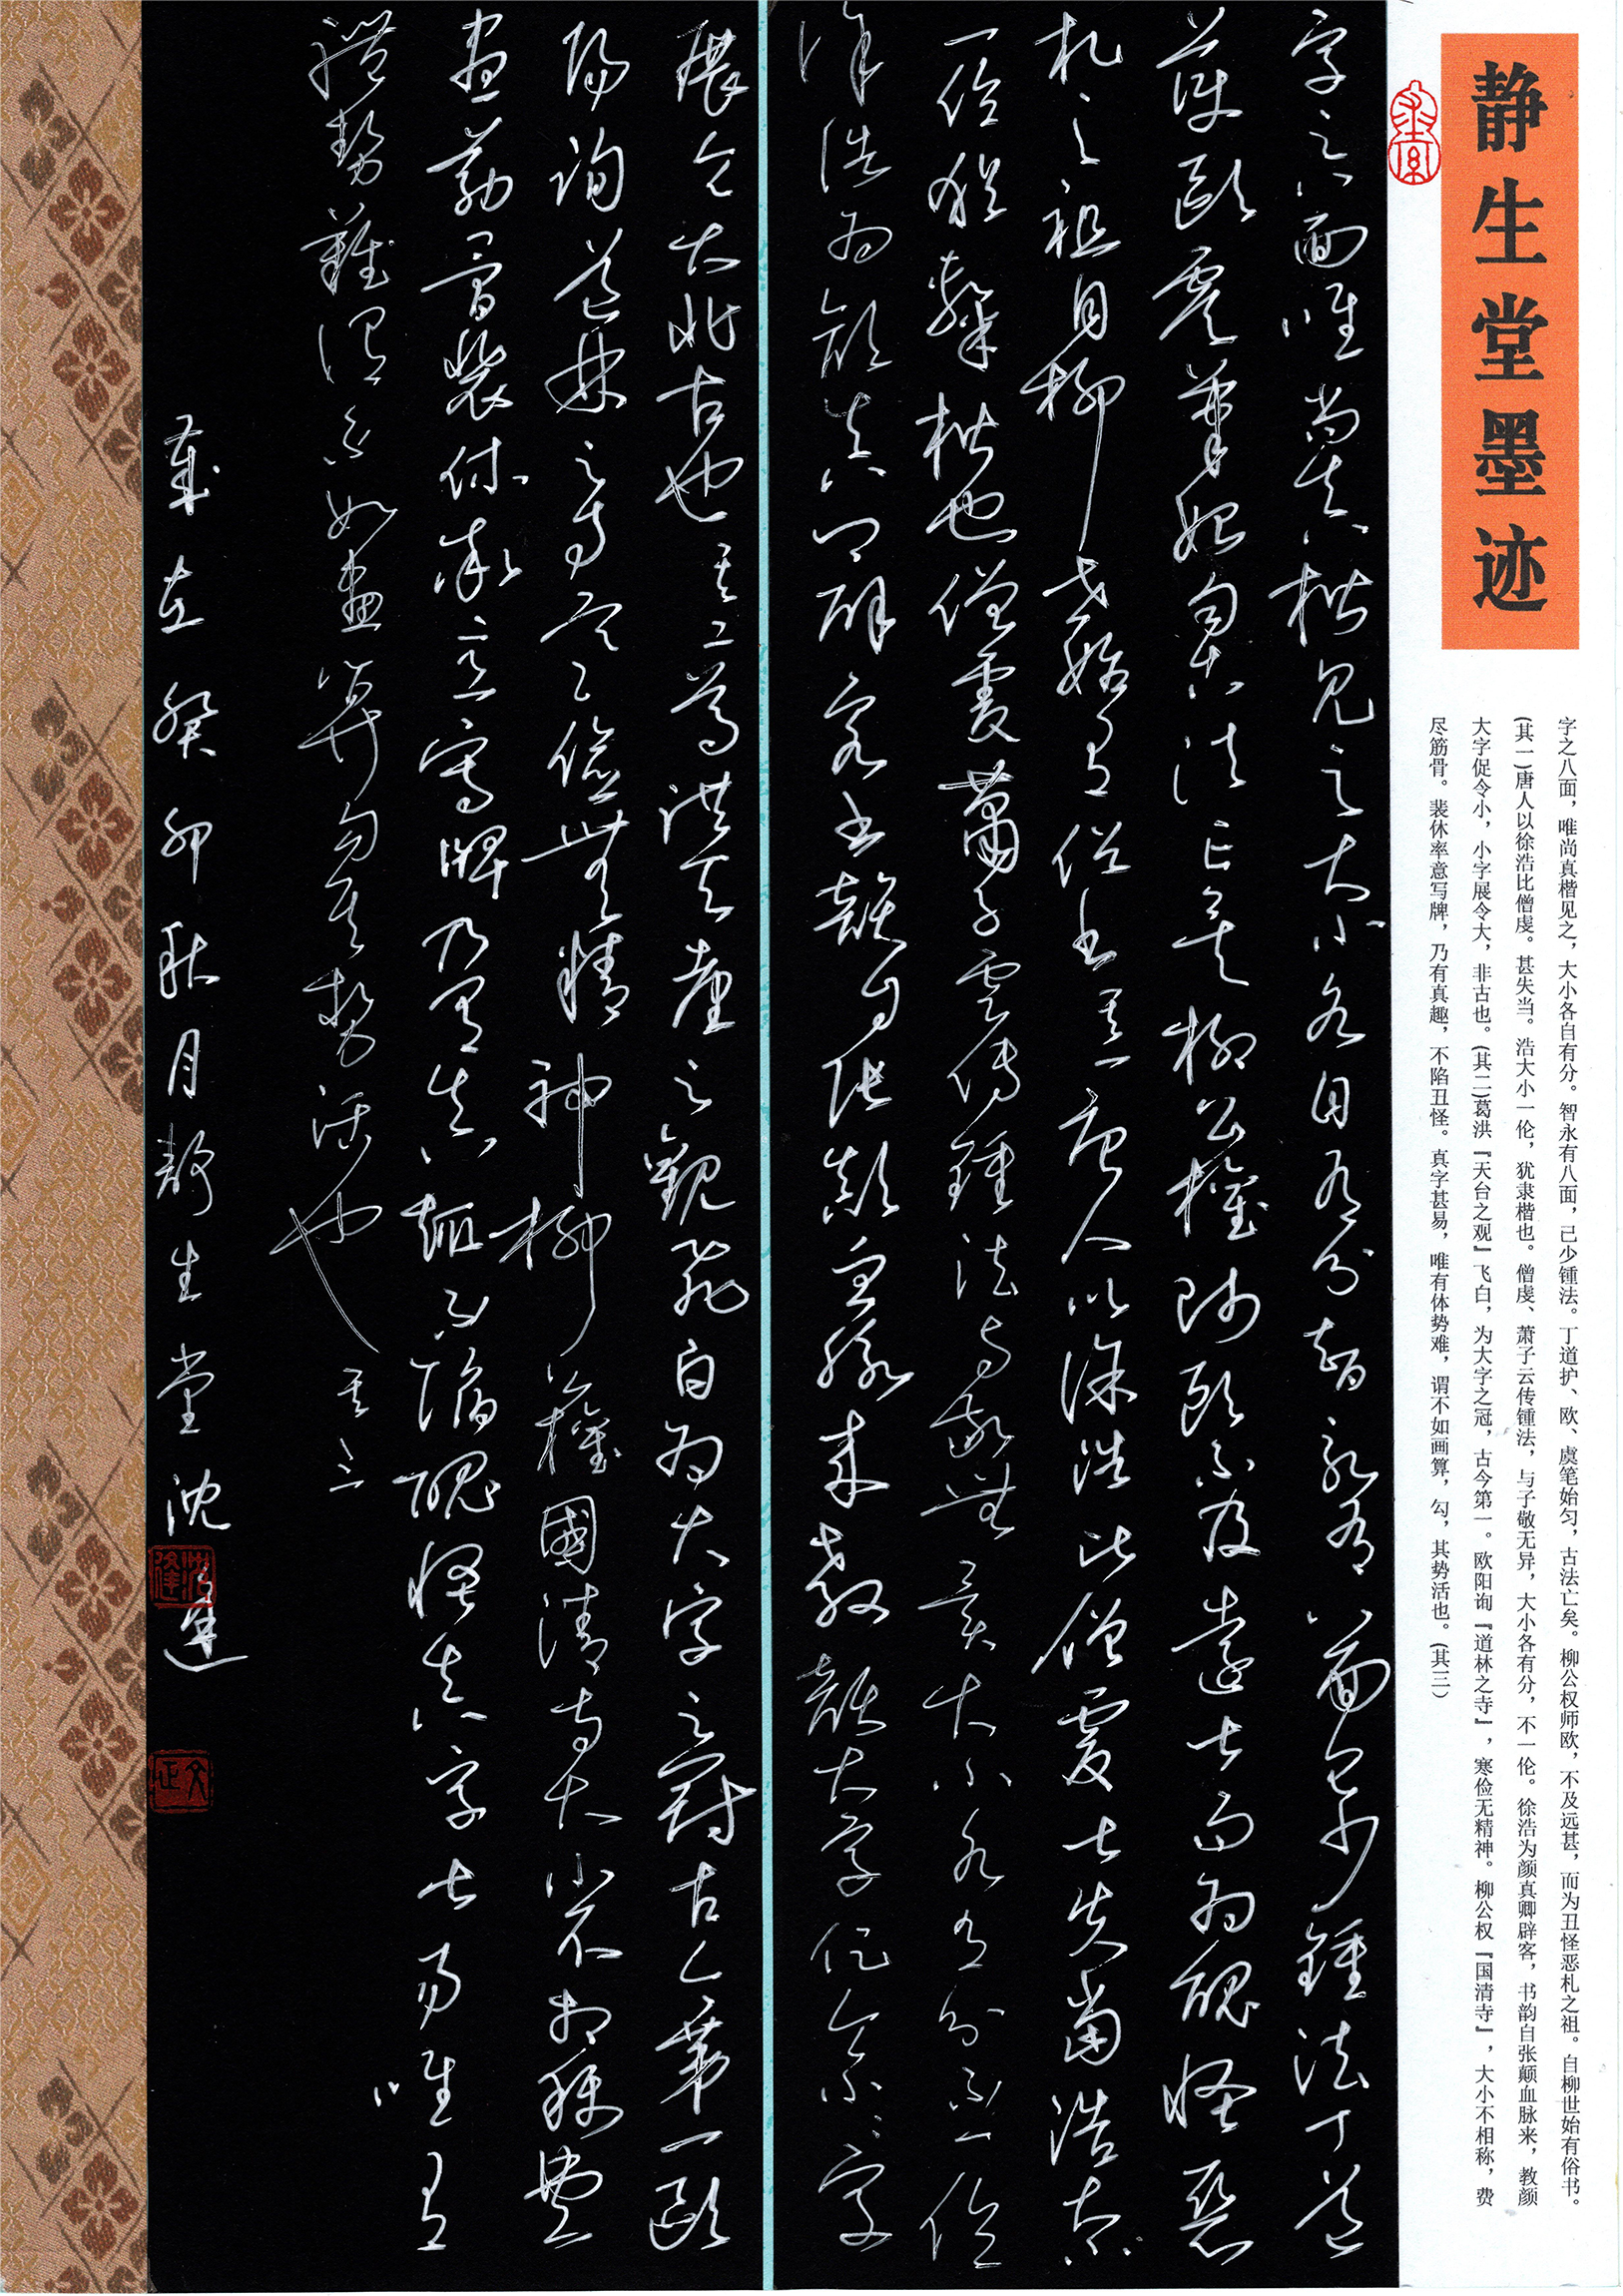 静生堂墨迹
字之八面，唯尚真楷见之，大小各自有分。智永有八面，已少锺法。丁道护、欧、虞笔始匀，古法亡矣。柳公权师欧，不及远甚，而为丑怪恶札之祖。自柳世始有俗书。
(其一)唐人以徐浩比僧虔。甚失当。浩大小一伦，犹隶楷也。僧虔、萧子云传锺法，与子敬无异，大小各有分，不一伦。徐浩为颜真卿辟客，书韵自张颠血脉来，教颜
大字促令小，小字展令大，非古也。(其二)葛洪『天台之观』飞白，为大字之冠，古今第一。欧阳询『道林之寺』，寒俭无精神。柳公权『国清寺』，大小不相称，费
尽筋骨。裴休率意写牌，乃有真趣，不陷丑怪。真字甚易，唯有体势难，谓不如画算，勾，其势活也。(其三)
字之八面唯尚真楷见之大小各自有分智永有八面已少鍾法丁道
護歐虞筆始匀古法亡矣柳公權師歐不及遠甚而為醜怪惡
札之祖自柳世始有俗書其一唐人以徐浩比僧虔甚失當浩大小
一倫猶隸楷也僧虔蕭子雲傳鍾法与子敬無異大小各有分不一倫
徐浩為顏真卿辟客書韻自張顛血脈來教顏大字促令小小字
展令大非古也其二葛洪天台之觀飛白為大字之冠古今第一歐
陽詢道林之寺寒儉無精神柳公權國清寺大小不相稱費
盡筋骨裴休率意寫牌乃有真趣不陷醜怪真字甚易唯有
體勢難謂不如畫算勾其勢活也其三
歲在癸卯秋月静生堂沈逢
沈逢
文正